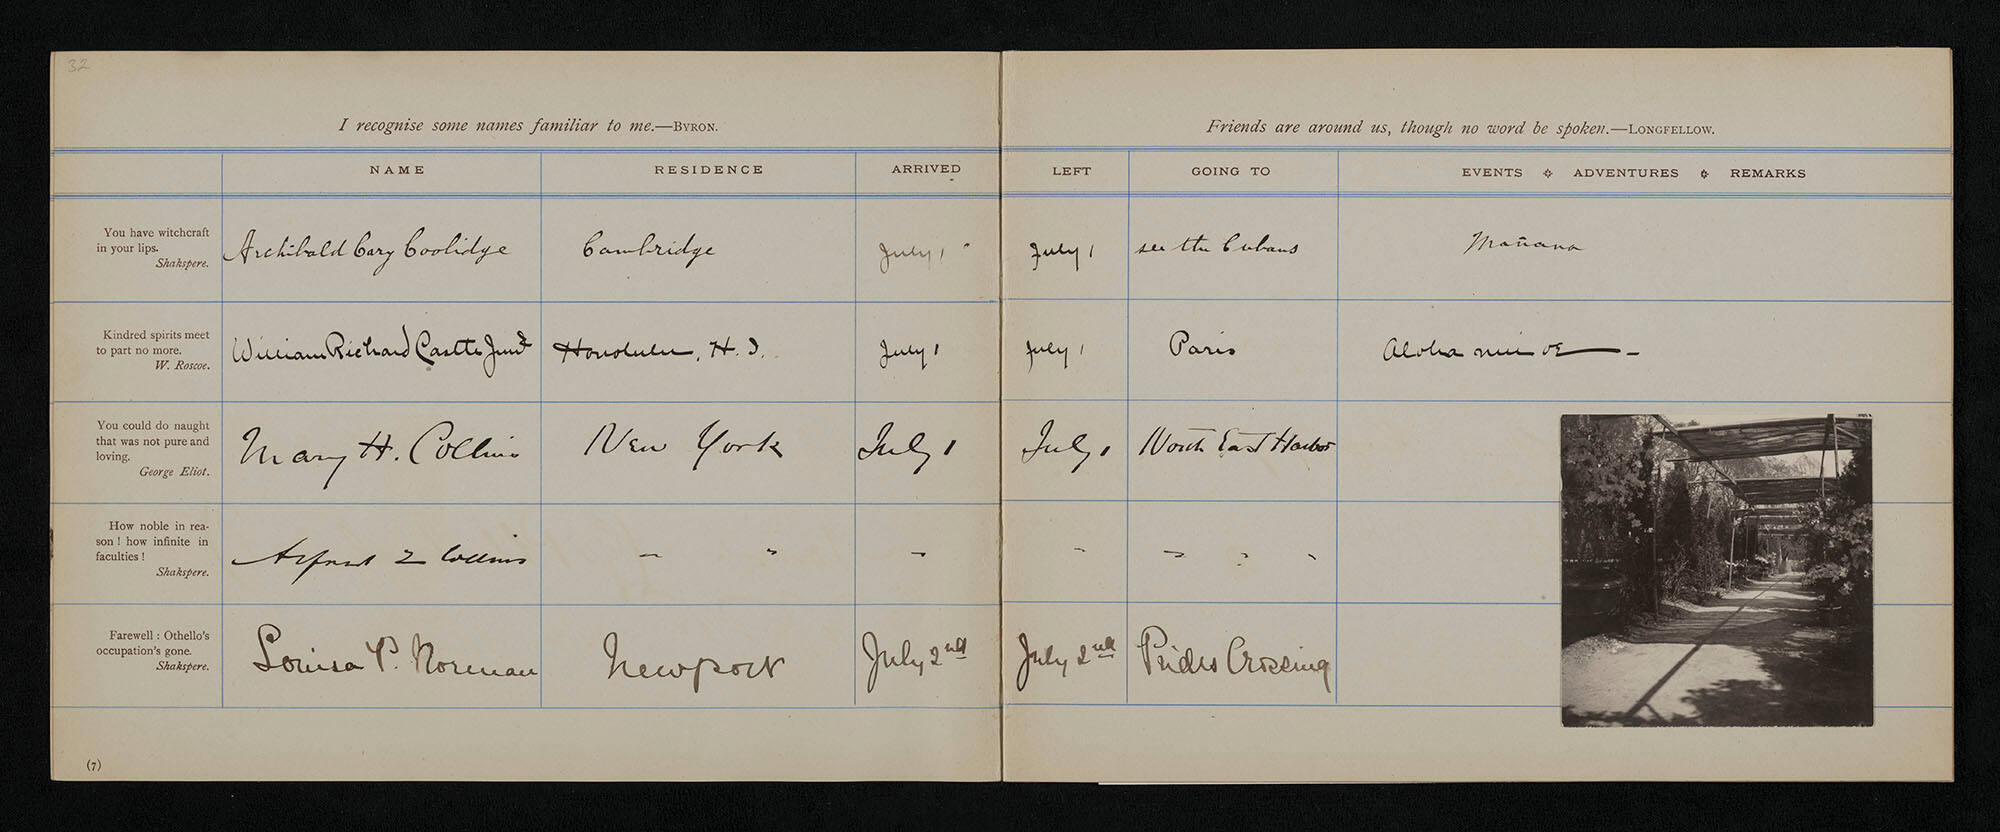 32
I recognise some names familiar to me.—BYRON.
Friends are around us, though no word be spoken.—LONGFELLOW.
NAME RESIDENCE ARRIVED LEFT GOING TO EVENTS ADVENTURES REMARKS
You have witchcraft
in your lips.
Shakspere.
Archibald Cary Coolidge Cambridge July 1 July 1 see the Cubans Mañana
Kindred spirits meet
to part no more.
W. Roscoe.
William Richard Castle Junr Honolulu, H. I. July 1 July 1 Paris Aloha nui oe —
You could do naught
that was not pure and
loving.
George Eliot.
Mary H. Collins New York July 1 July 1 North East Harbor
How noble in rea-
son ! how infinite in
faculties !
Shakspere.
Alfred Collins " " " " " " "
Farewell : Othello's
occupation's gone.
Shakspere.
Louisa P. Norman Newport July 2nd July 2nd Prides Crossing
(7)